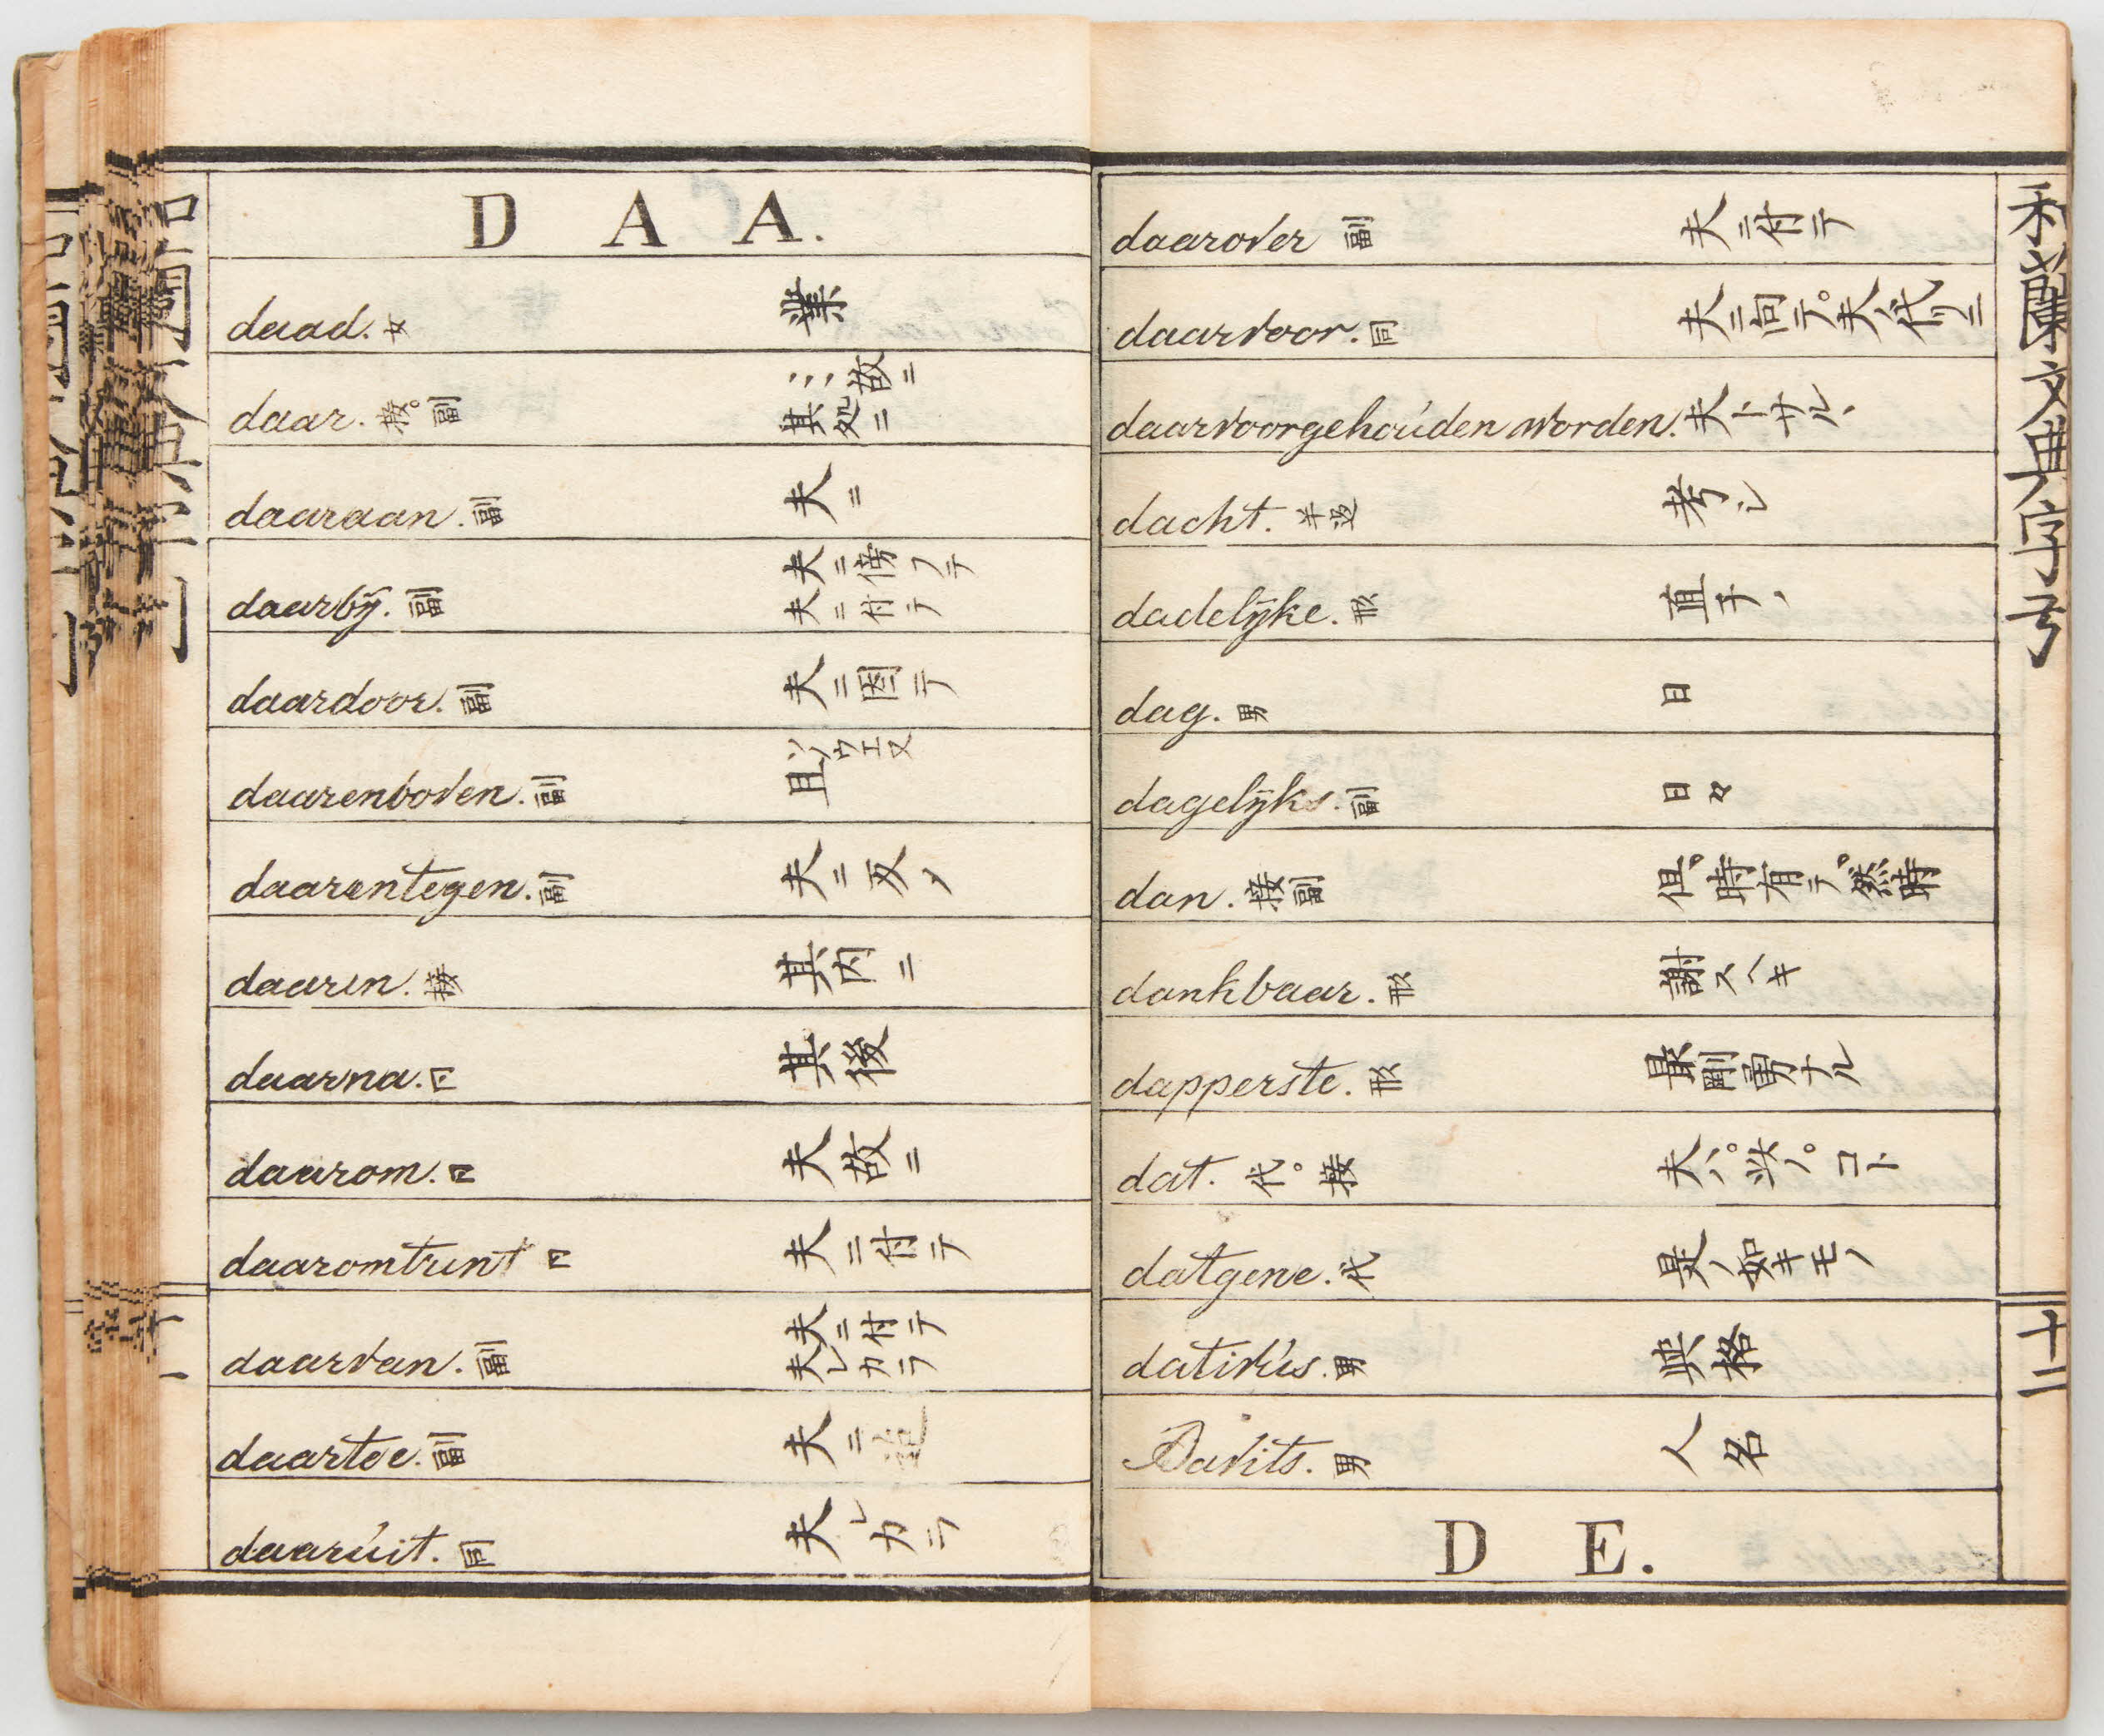 D A A.
daad. 女 業
daar. 接。副 其処ニ 故ニ
daaraan. 副 夫ニ
daarbÿ. 副 夫ニ傍フテ 夫ニ付テ
daardoor. 副 夫ニ因テ
daarenboven. 副 且 ソノウエ又
daarentegen. 副 夫ニ反メ
daarin. 接 其内ニ
daarna. 其後
daarom. 夫故ニ
daaromtrent 夫ニ付テ
daarvan. 副 夫ニ付テ 夫レカラ
daartoe. 副 夫ニ
daarúit. 同 夫レカラ
daarover 副 夫ニ付テ
daarvoor. 同 夫ニ向テ。夫ノ代リニ
daarvoorgehoúden worden. 夫トサルヽ
dacht. 半過 考ヘシ
dadelÿke. 形 直チノ
dag. 男 日
dagelÿks. 副 日々
dan. 接副 但。時有テ。然時
dankbaar. 形 謝スヘキ
dapperste. 形 最剛勇ナル
dat. 代。接 夫ハ。コト
datgene. 代 是ノ如キモノ
dativús. 男 與格
Davits. 男 人名
D E.
和蘭文典字号
十二